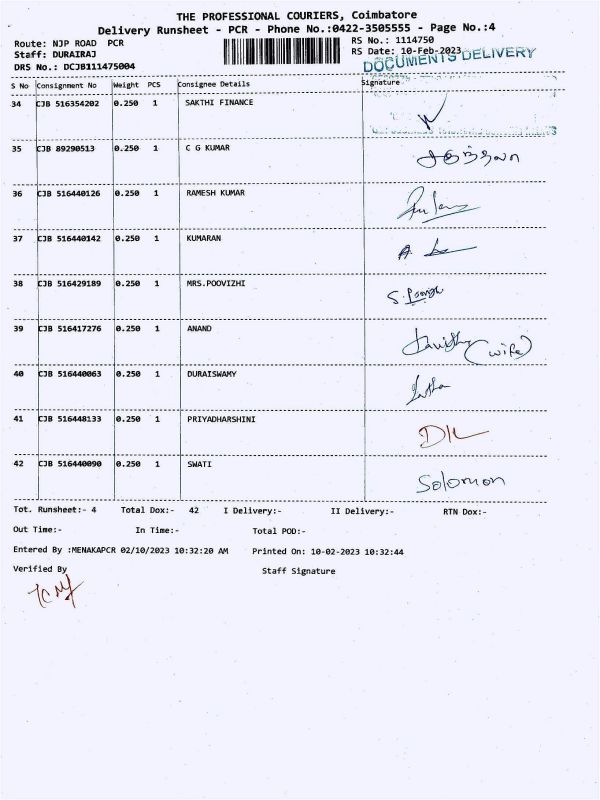 THE PROFESSIONAL COURIERS, Coimbatore
Delivery Runsheet - PCR - Phone No.:0422-3505555 - Page No.:4
Route: NJP ROAD PCR
RS No.: 1114750
Staff: DURAIRAJ
RS Date: 10-Feb-2023
DRS No.: DCJB111475004
DOCUMENTS DELIVERY
S No Consignment No Weight PCS Consignee Details Signature
34 CJB 516354202 0.250 1 SAKTHI FINANCE
35 CJB 89290513 0.250 1 C G KUMAR
36 CJB 516440126 0.250 1 RAMESH KUMAR
37 CJB 516440142 0.250 1 KUMARAN
38 CJB 516429189 0.250 1 MRS.POOVIZHI
39 CJB 516417276 0.250 1 ANAND (wife)
40 CJB 516440063 0.250 1 DURAISWAMY
41 CJB 516448133 0.250 1 PRIYADHARSHINI
42 CJB 516440090 0.250 1 SWATI Solomon
Tot. Runsheet:- 4 Total Dox:- 42 I Delivery:- II Delivery:- RTN Dox:-
Out Time:- In Time:- Total POD:-
Entered By :MENAKAPCR 02/10/2023 10:32:20 AM Printed On: 10-02-2023 10:32:44
Verified By Staff Signature